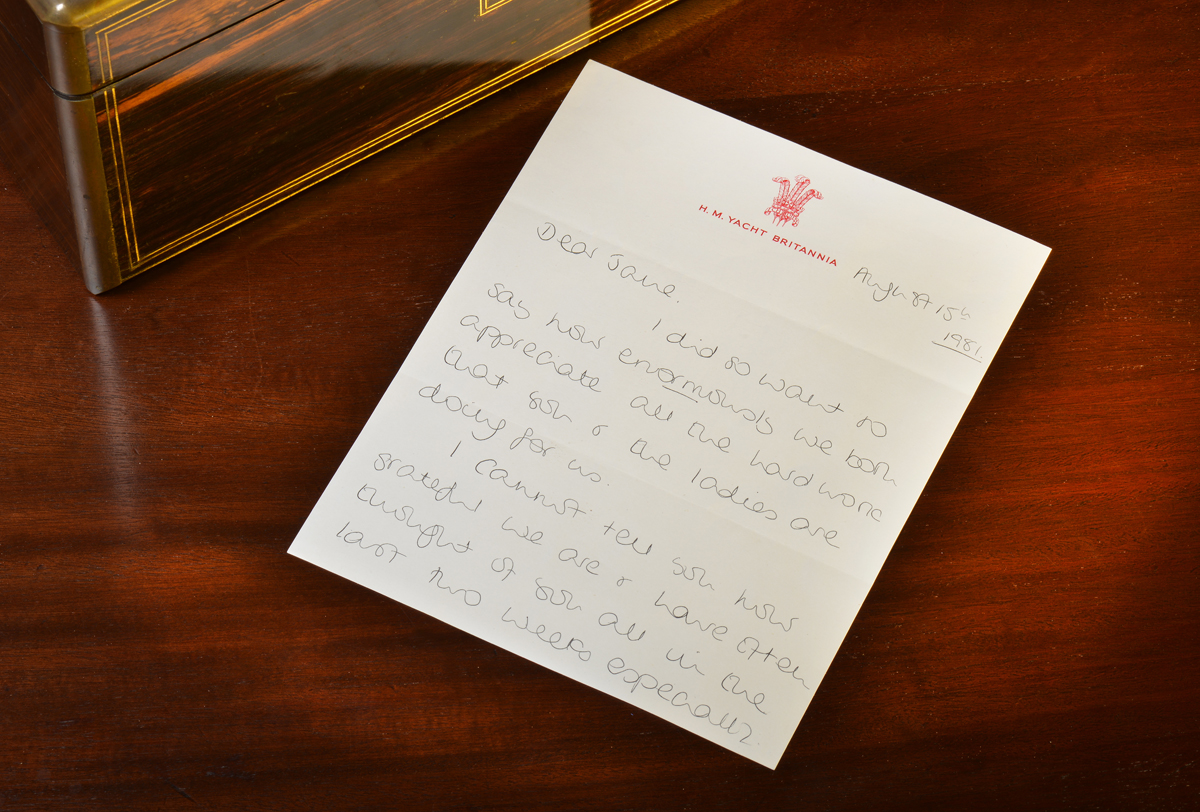 H. M. YACHT BRITANNIA
August 15th
1981.
Dear Jane.
I did so want to
say how enormously we both
appreciate all the hard work
that you & the ladies are
doing for us.
I cannot tell you how
grateful we are & have often
thought of you all in the
last two weeks especially.